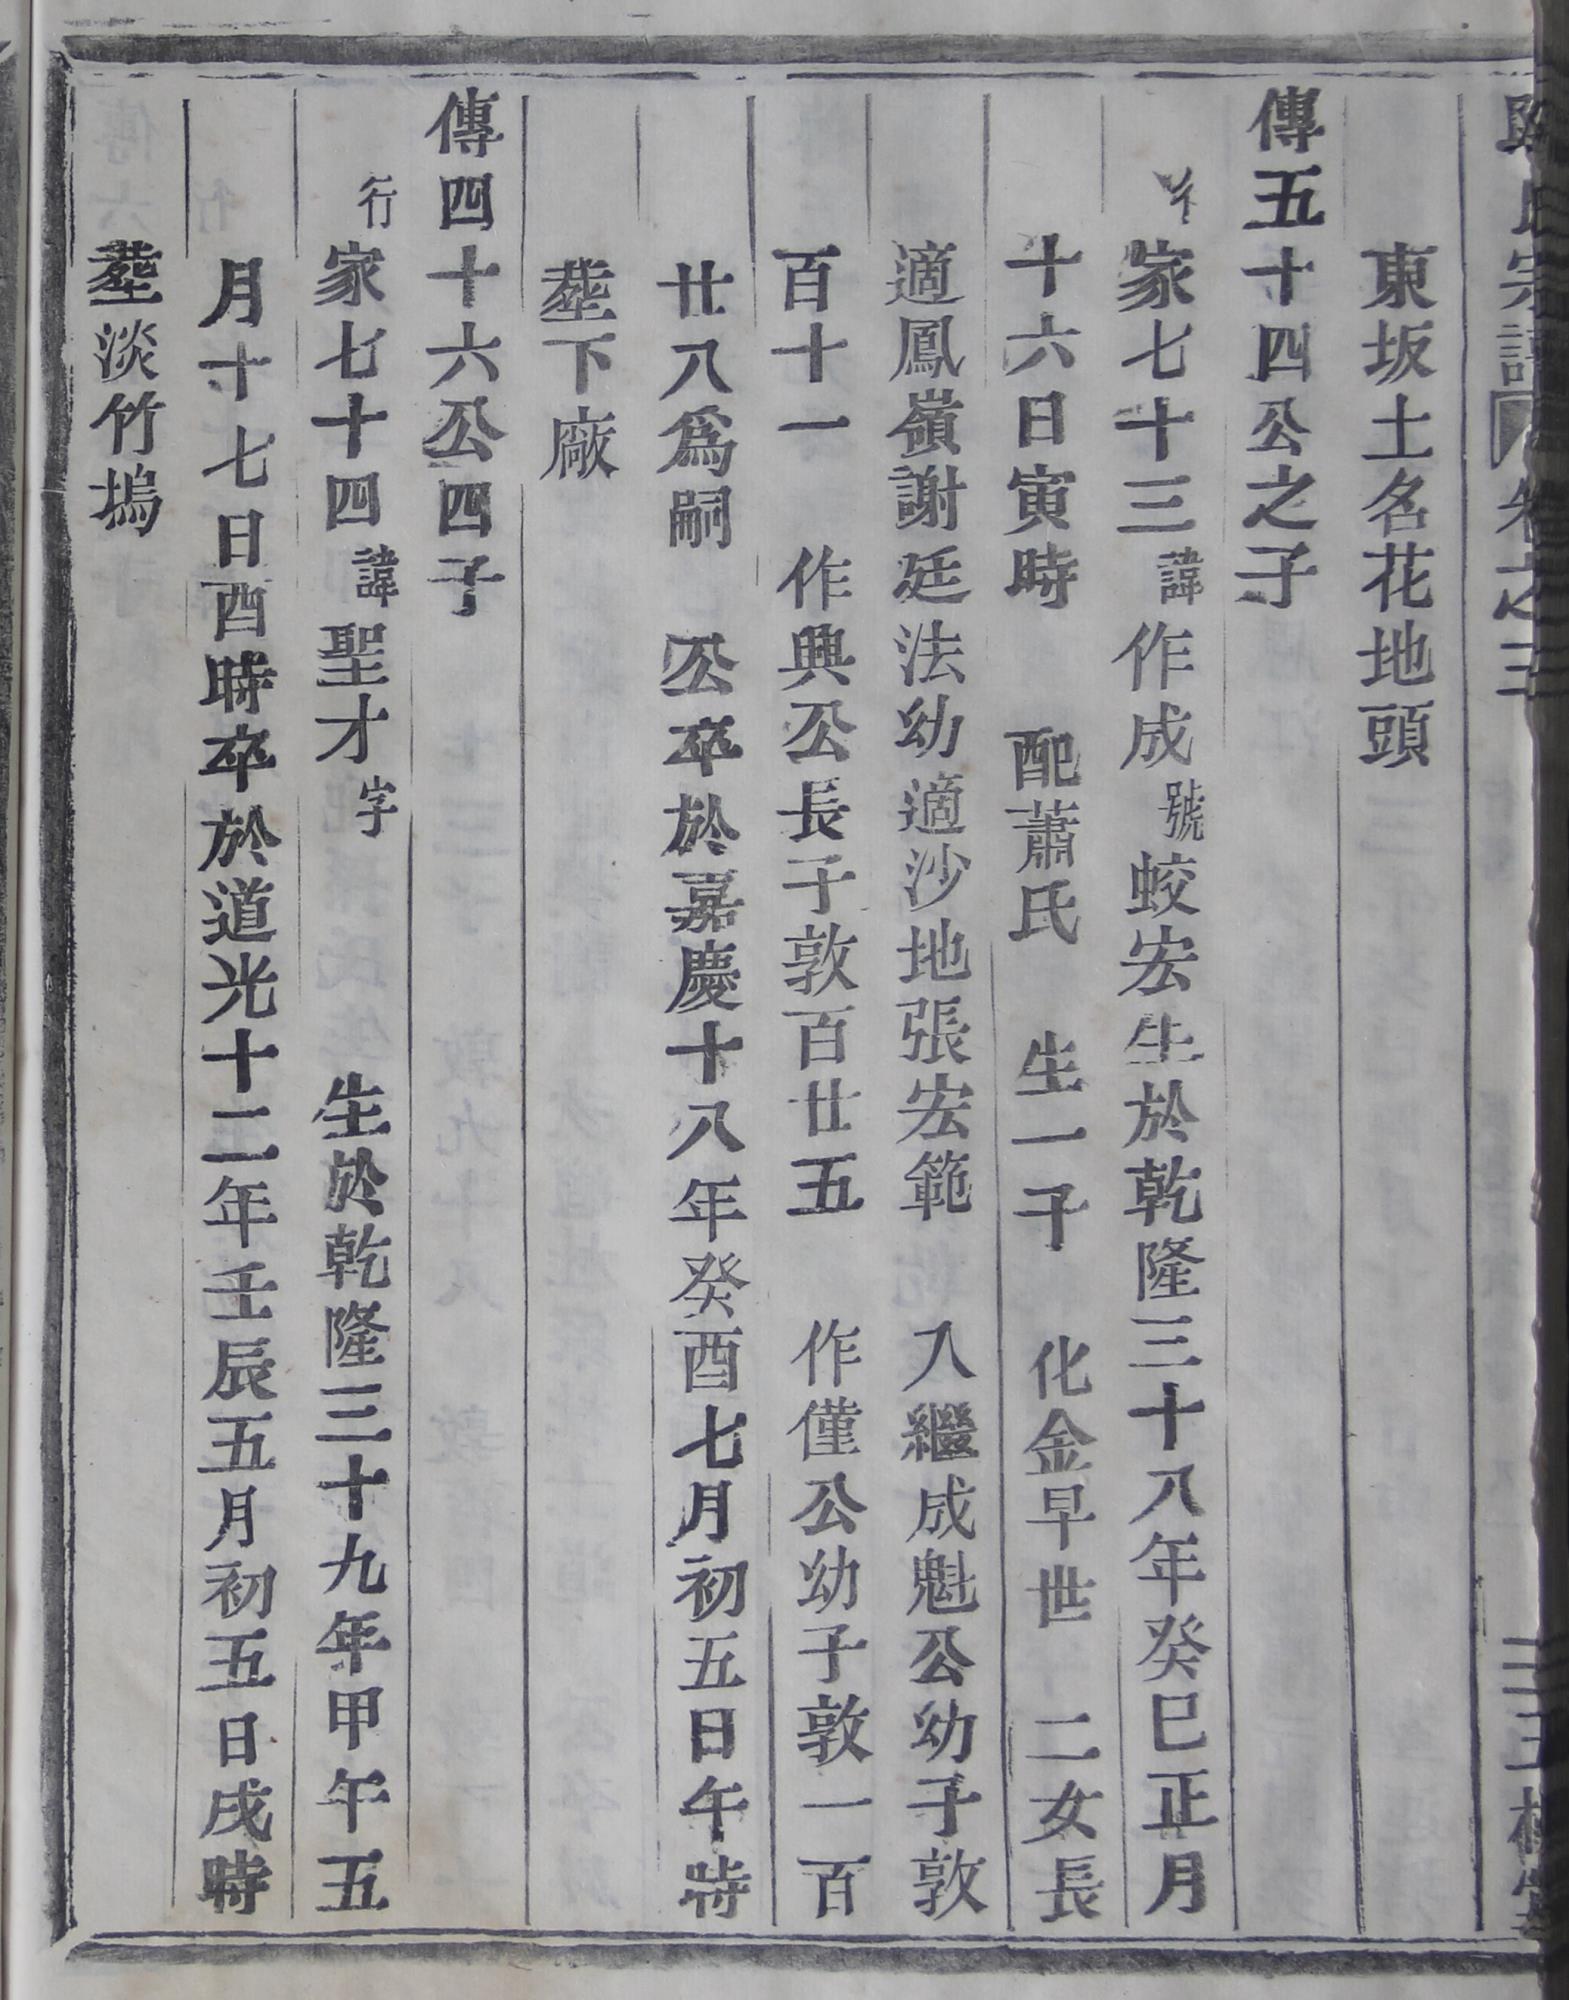 氏宗譜 卷之三
東坂土名花地頭
傳五十四公之子
行家七十三諱作成號蛟宏生於乾隆三十八年癸巳正月
十六日寅時 配蕭氏 生一子 化金早世 二女長
適鳳嶺謝廷法幼適沙地張宏範 入繼成魁公幼子敦
百十一 作興公長子敦百廿五 作僅公幼子敦一百
廿八爲嗣 公卒於嘉慶十八年癸酉七月初五日午時
塟下廠
傳四十六公四子
行家七十四諱聖才字 生於乾隆三十九年甲午五
月十七日酉時卒於道光十二年壬辰五月初五日戌時
塟淡竹塢